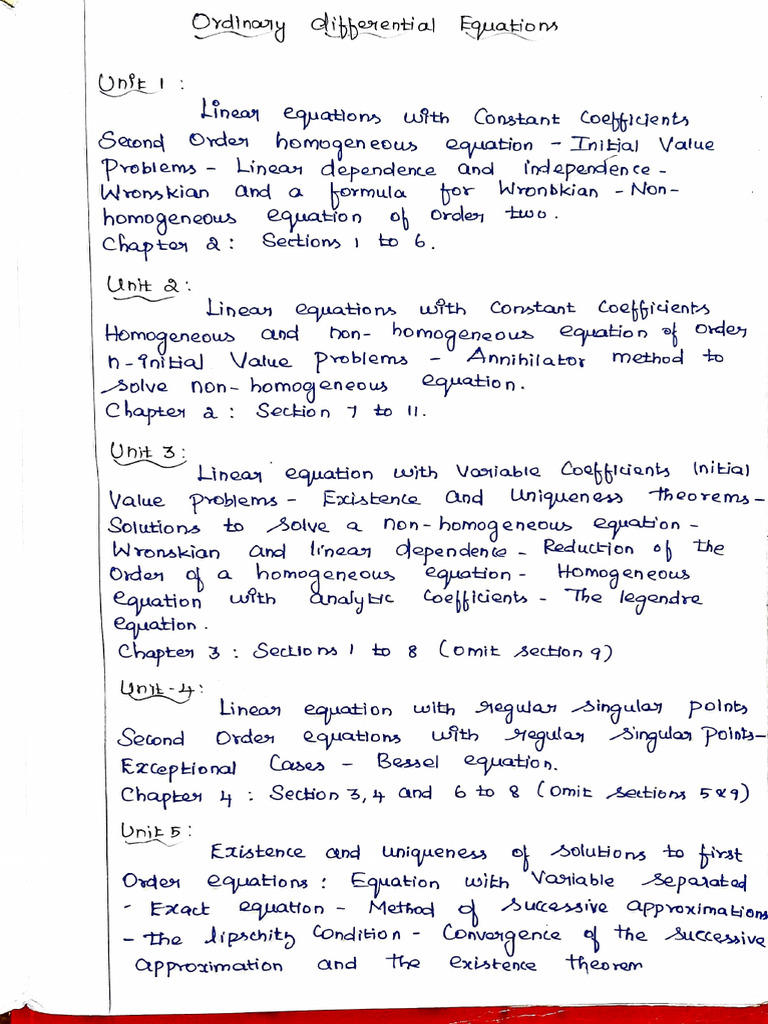 Ordinary differential Equations
Unit 1 :
Linear equations with Constant Coefficients
Second Order homogeneous equation - Initial Value
Problems - Linear dependence and independence -
Wronskian and a formula for Wronskian - Non-
homogeneous equation of order two.
Chapter 2 : Sections 1 to 6.
Unit 2 :
Linear equations with Constant Coefficients
Homogeneous and non- homogeneous equation of order
n-Initial Value problems - Annihilator method to
solve non- homogeneous equation.
Chapter 2 : Section 7 to 11.
Unit 3 :
Linear equation with Variable Coefficients Initial
Value problems - Existence and Uniqueness theorems -
Solutions to solve a non-homogeneous equation -
Wronskian and linear dependence - Reduction of the
Order of a homogeneous equation - Homogeneous
equation with analytic coefficients - The legendre
equation.
Chapter 3 : Sections 1 to 8 (omit section 9)
Unit-4 :
Linear equation with regular singular points
Second Order equations with regular singular points -
Exceptional Cases - Bessel equation.
Chapter 4 : Section 3, 4 and 6 to 8 (omit sections 5 & 9)
Unit 5 :
Existence and uniqueness of solutions to first
Order equations : Equation with Variable separated
- Exact equation - Method of successive approximations
- the lipschitz condition - Convergence of the successive
approximation and the existence theorem